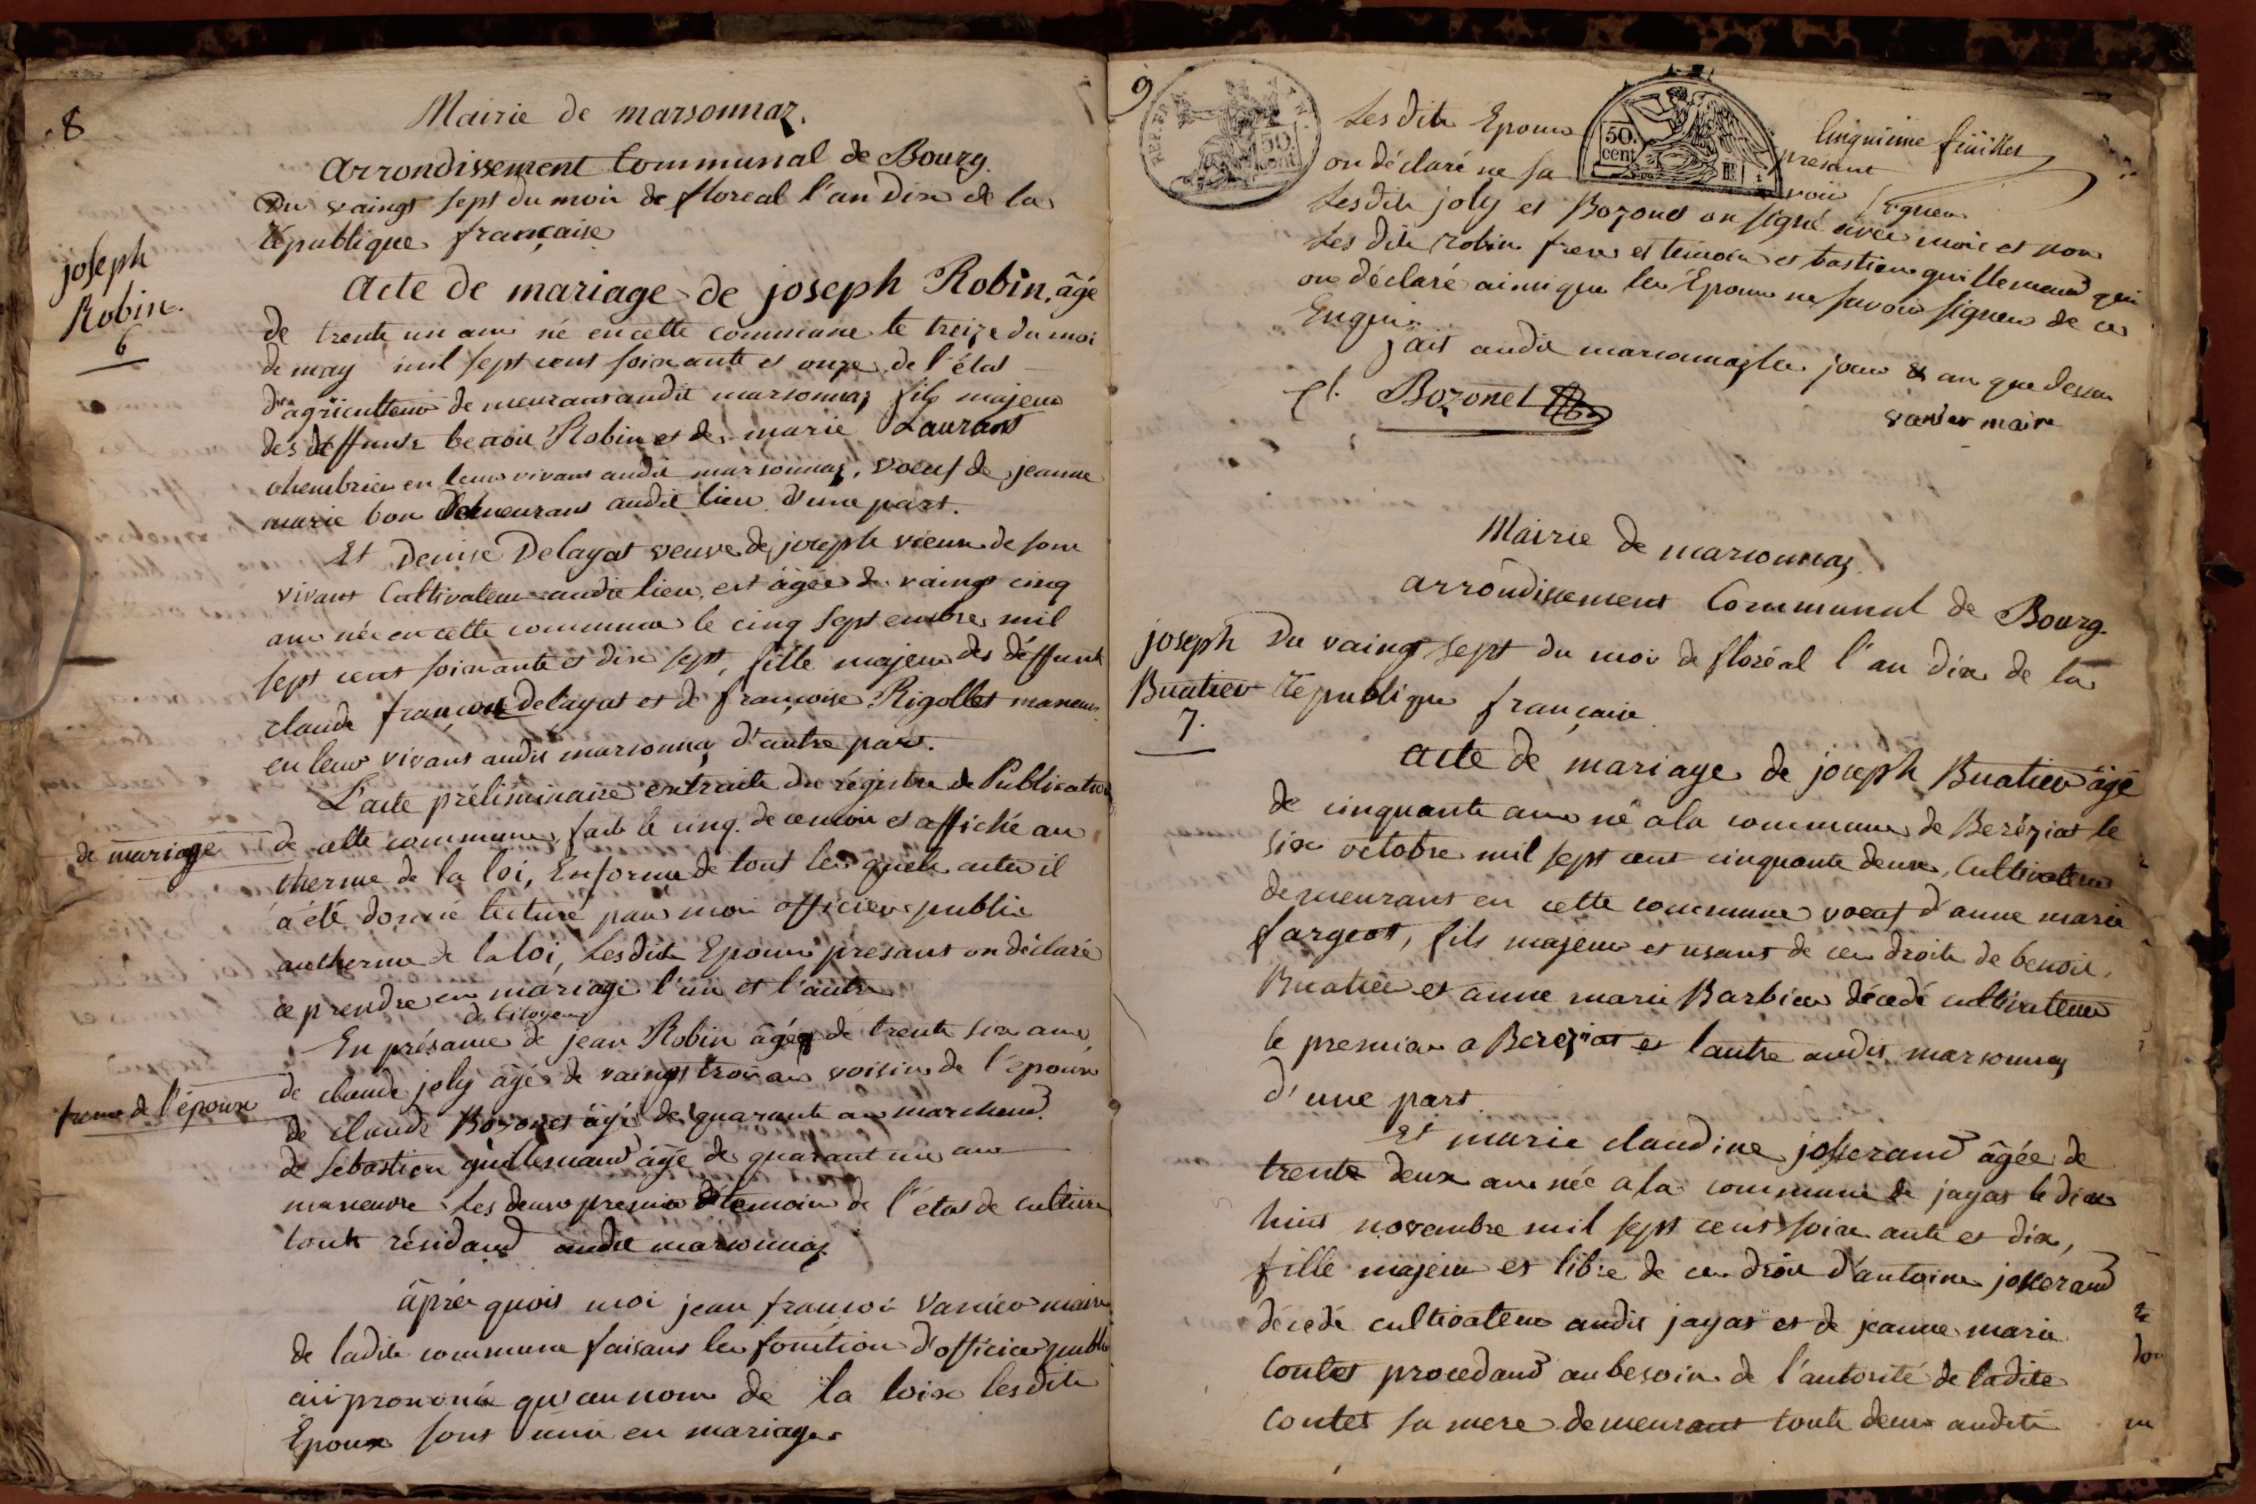 8
Mairie de marsonnaz.
Arrondissement Communal de Bourg.
Du vaingt sept du mois de floreal l'an dix de la
République française
joseph
Robin.
6
Acte de mariage de joseph Robin, âgé
de trente un ans né en cette commune le treize du moi
de may mil sept cent soixante et onze de l'état
d'agriculteur demeurant audit marsonnaz fils majeur
des deffunts benoit Robin et de marie Laurant
en leur vivant audit marsonnaz, voeuf de jeanne
marie bon demeurant audit lieu d'une part.
Et Denise Delayat veuve de joseph vieux de son
vivant Cultivateur audit lieu, est âgée de vaingt cinq
ans née en cette commune le cinq septembre mil
sept cent soixante et dix sept, fille majeur des déffunt
claude françois Delayat et de françoise Rigollet maneuv.
en leur vivant audit marsonnaz d'autre part.
L'acte préliminaire extraite du régistre de Publication
de mariage
de cette commune, fait le cinq de ce mois et affiché au
therme de la loi, En forme de tout lesquels actes il
a été donné lecture par moi officier public
au therme de la loi, Lesdits Epoux présant on déclaré
ce prendre en mariage l'un et l'autre
de citoyens
En présance de jean Robin âgé de trente six ans,
frere de l'époux
de claude joly âgé de vaingt trois ans voisin de l'époux
de claude Bozonet âgé de quarante ans marchand
de Sebastien guillemaud âgé de quarant un ans
maneuvre Les deux premier témoin de l'état de culture
tout résidand audit marsonnaz
âprés quois moi jean françois Vanier maire
de ladite commune faisant les fonction d'officier public
ai prononcé qu'au nom de la loix lesdits
Epoux sont unis en mariage
9
50 cent
50. cent
Cinquième feuillet
Lesdits Epoux presant
on déclaré ne savoir signer
Lesdits joly et Bozonet on signé avec moi et non
Les dits Robin frere et temoin et bastien guillemaud qui
on déclaré ainsi que les Epoux ne savoir signer de ce
Enquis
fait audit marsonnaz les jour & an que dessus
Cl. Bozonet
vanier maire
Mairie de marsonnaz
arrondissement Communal de Bourg.
joseph
Buatier
7.
Du vaingt sept du mois de floréal l'an dix de la
République française
acte de mariage de joseph Buatier âgé
de cinquante ans né a la commune de Beréziat le
six octobre mil sept cent cinquante deux, Cultivateur
demeurant en cette commune voeuf d'anne marie
fargeot, fils majeur et usant de ces droits de benoit
Buatier et anne marie Barbier décedé cultivateur
le premier a Bereziat et l'autre audit marsonnaz
d'une part
Et marie claudine josserand âgée de
trente deux ans née a la commune de jayat le dix
huit novembre mil sept cent soixante et dix,
fille majeur et libre de ces droit d'antoine josserand
décedé cultivateur audit jayat et de jeanne marie
Contet procedand au besoin de l'autorité de ladite
Contet sa mere demeurant toute deux audit